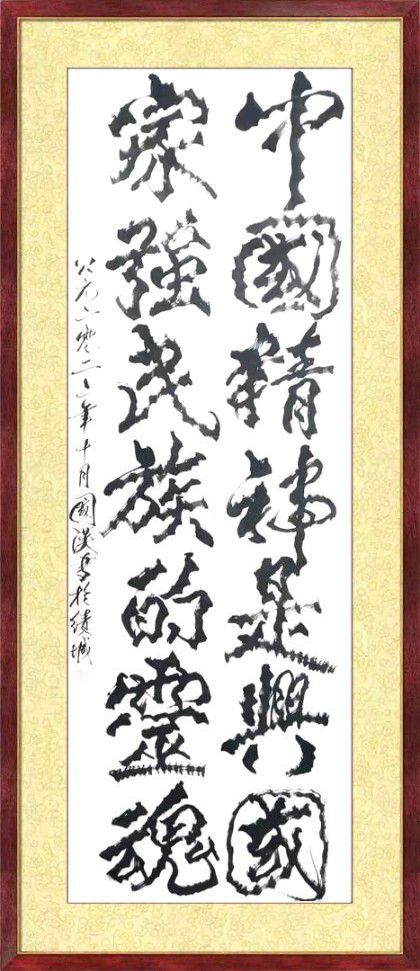 中國精神是興國
家強民族的靈魂
公元二零二年十月國漢書於績城